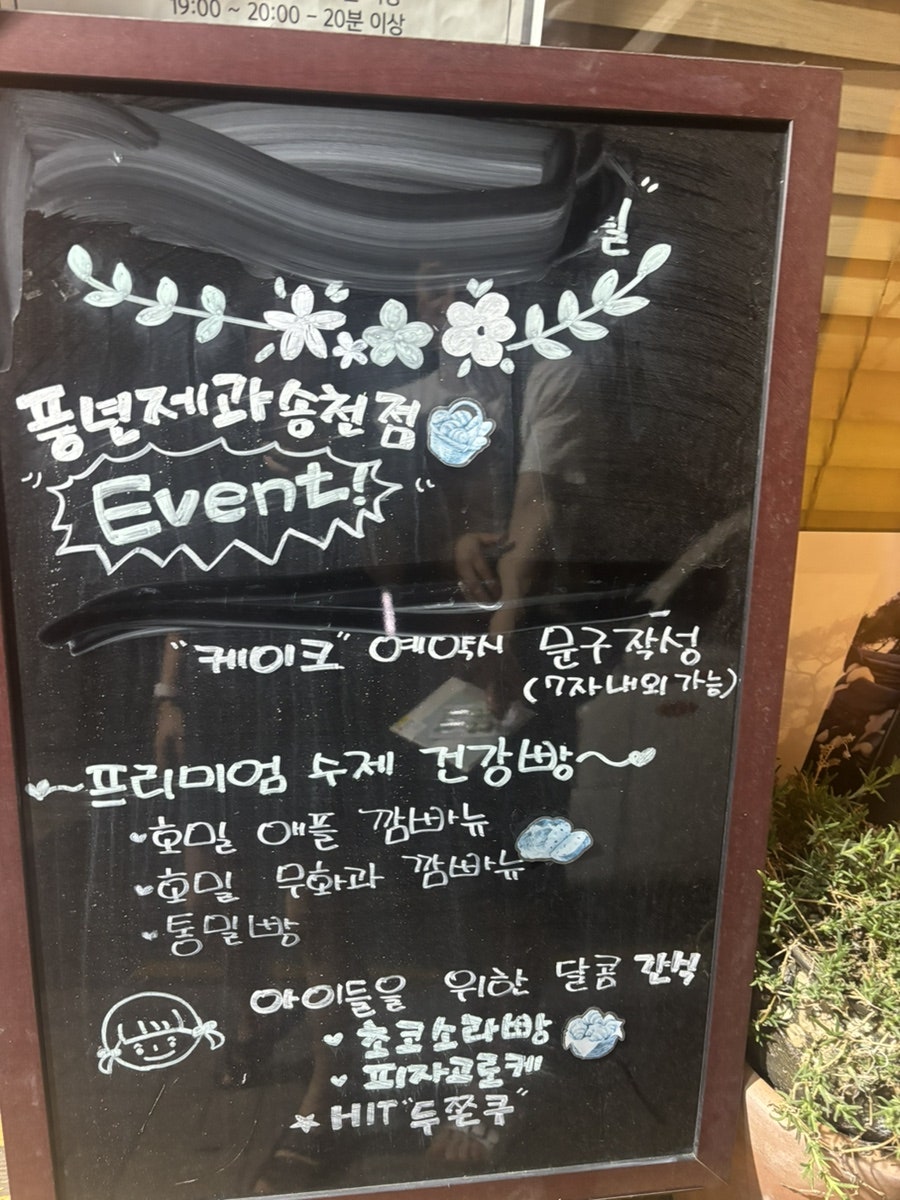 19:00 ~ 20:00 - 20분 이상
풍년제과송천점
Event!
"케이크" 예약시 문구작성
(7자내외가능)
~프리미엄 수제 건강빵~
호밀 애플 깜빠뉴
호밀 무화과 깜빠뉴
통밀빵
아이들을 위한 달콤 간식
초코소라빵
피자고로케
HIT "두쫀쿠"